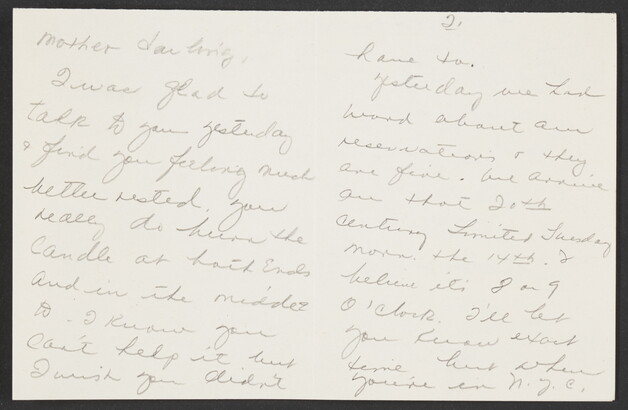 Mother Darling,
I was glad to
talk to you yesterday
& find you feeling much
better rested. You
really do burn the
candle at both Ends
and in the middle
to. I know you
can't help it but
I wish you didn't
2.
have to.
Yesterday we had
word about our
reservations & they
are fine. We arrive
on that 20th
Century Limited Tuesday
morn. the 14th. I
believe its 8 or 9
O'clock. I'll let
you know exact
time but when
you're in N.Y.C.